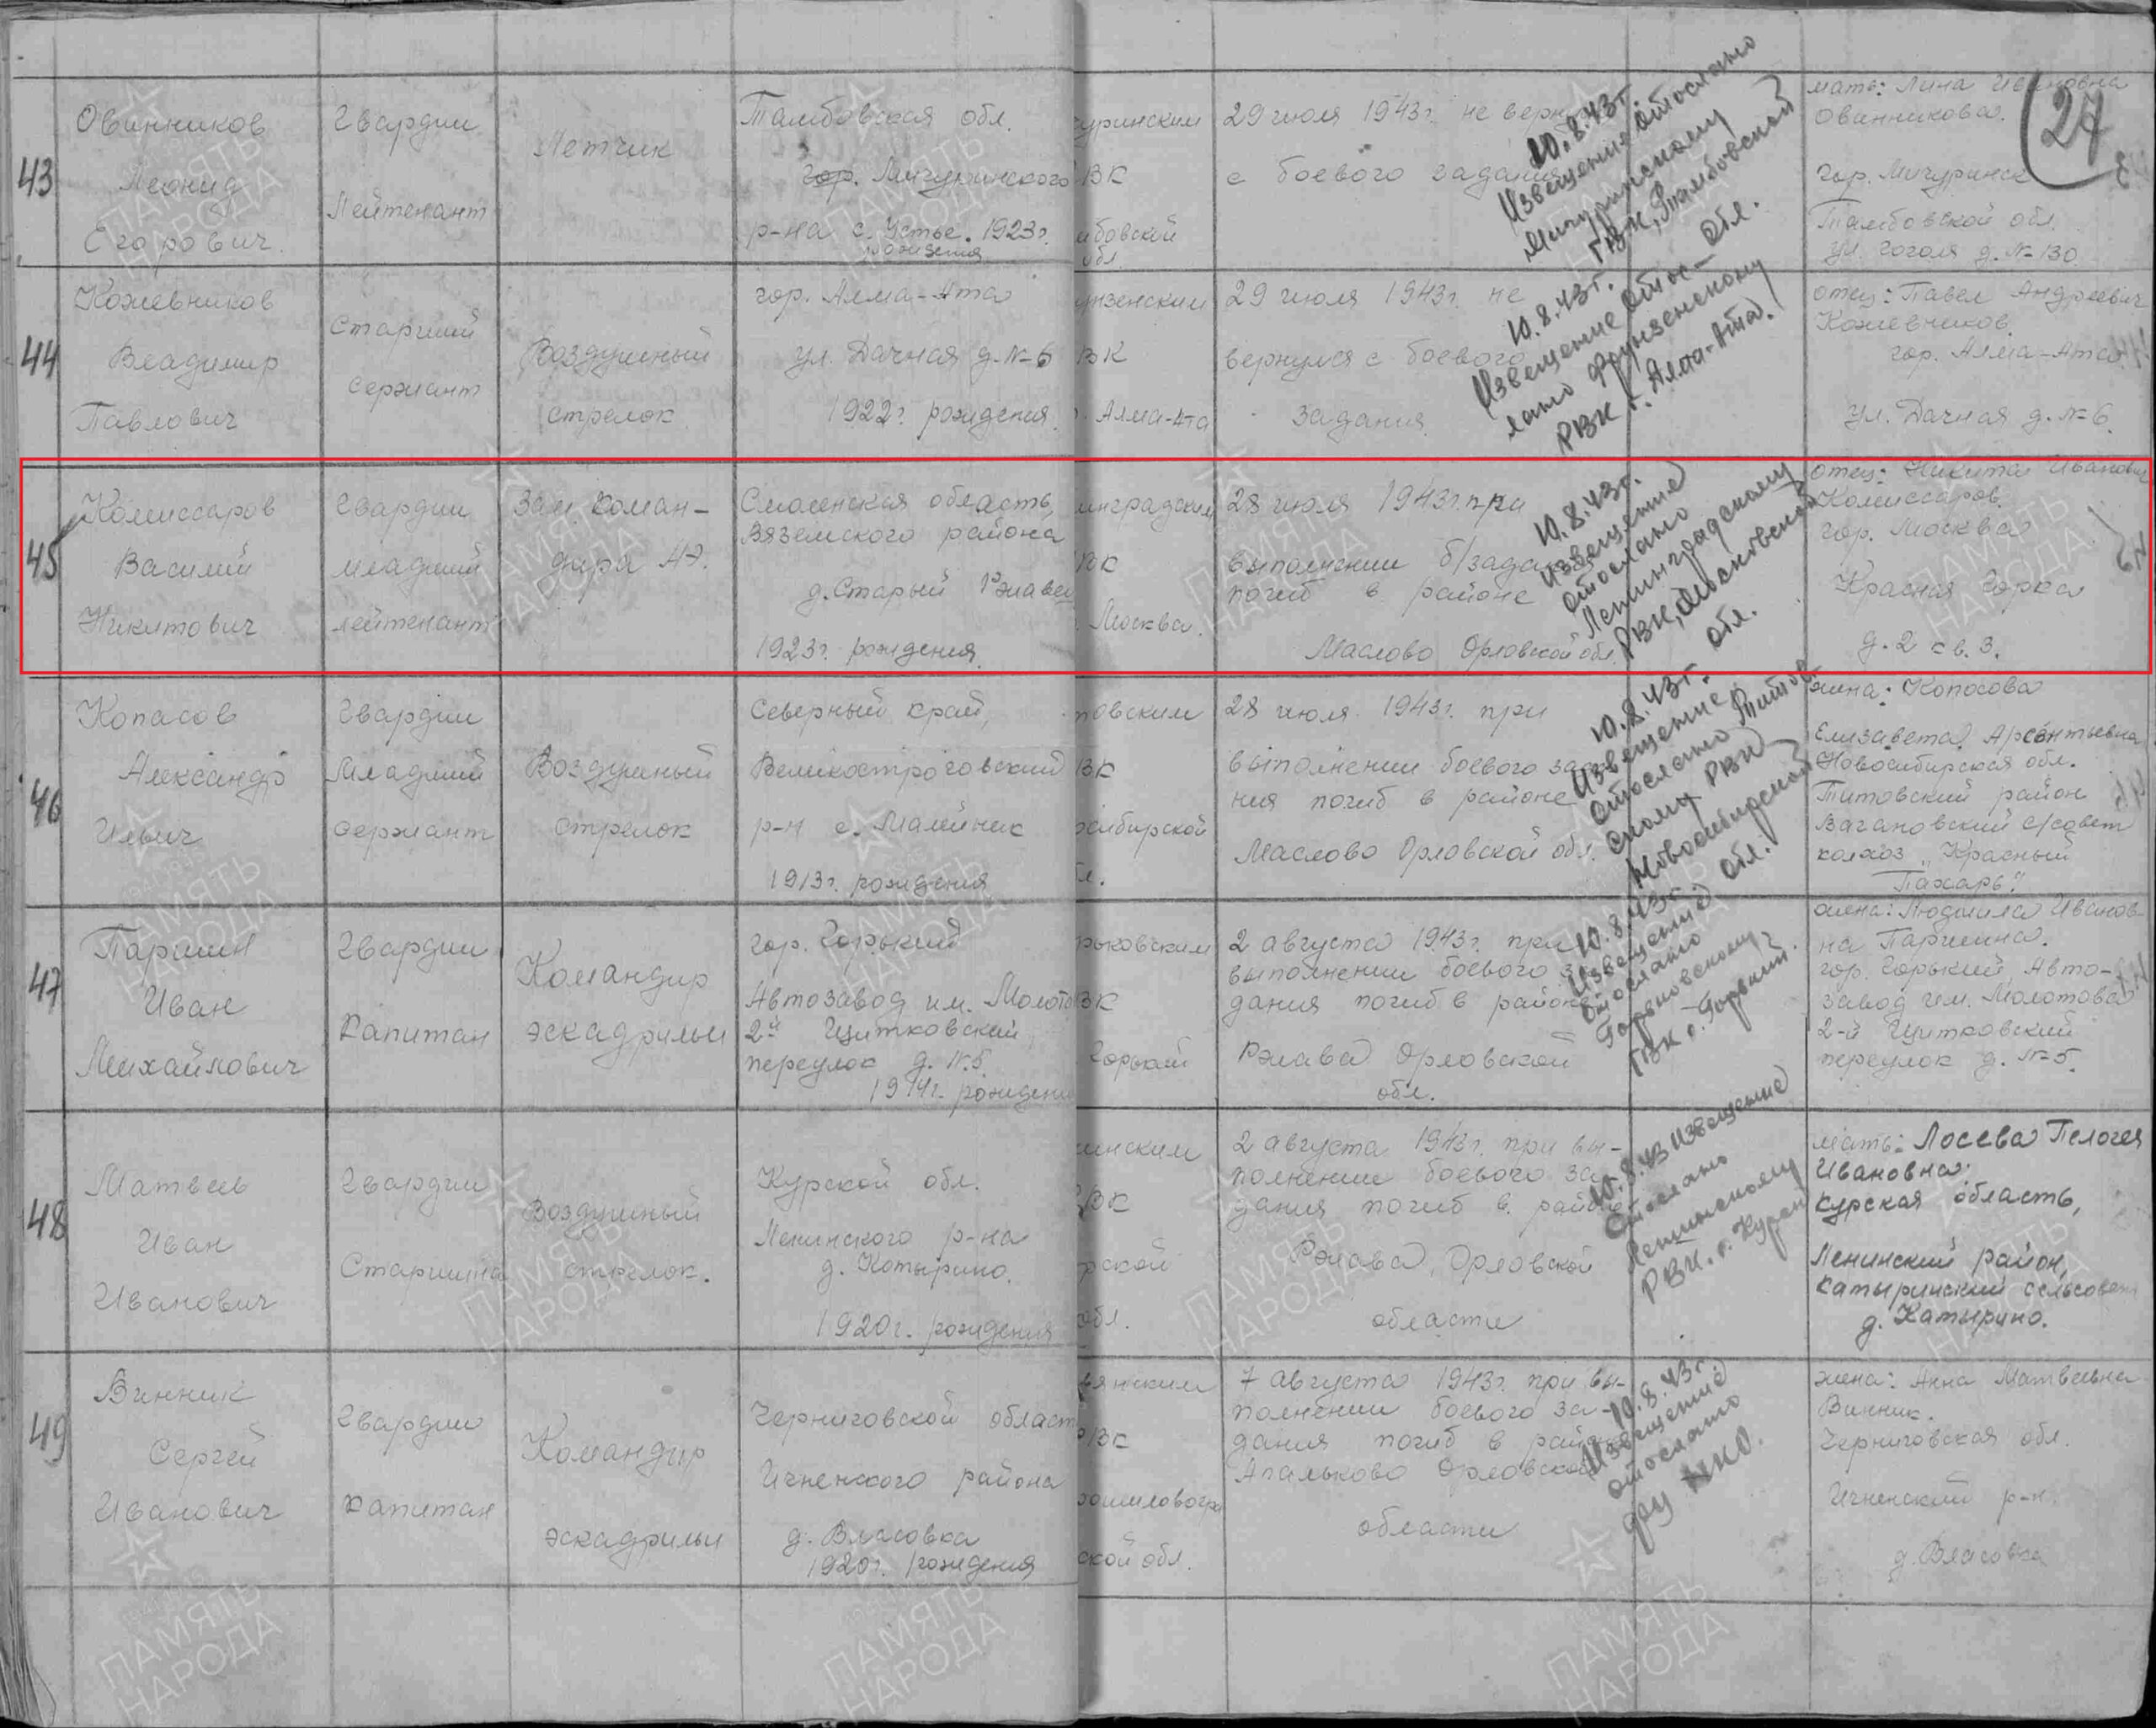 27
43
Овинников
Леонид
Егорович.
Гвардии
Лейтенант
Летчик
Тамбовская обл.
гор. Мичуринского
р-на с. Устье. 1923г.
рождения
уринским
ВК
мбовской
обл.
29 июля 1943г. не верн
с боевого задания
10.8.43г.
Извещение отослано
Мичуринскому
ГВК, Тамбовской
обл.
мать: Лина Ивановна
Овинникова.
гор. Мичуринск
Тамбовской обл.
ул. Гоголя д. №130
44
Кожевников
Владимир
Павлович
Старший
Сержант
Воздушный
стрелок
гор. Алма-Ата
ул. Дачная д. №6
1922г. рождения.
унзенским
ВК
. Алма-Ата
29 июля 1943г. не
вернулся с боевого
задания
10.8.43г.
Извещение отос-
лано Фрунзенскому
РВК г. Алма-Ата.
отец: Павел Андреевич
Кожевников.
гор. Алма-Ата
ул. Дачная д. №6.
45
Комиссаров
Василий
Никитович
Гвардии
младший
лейтенант
Зам. Коман-
дира АЭ.
Смоленская область,
Вяземского района
д. Старый Ржавец
1923г. рождения
инградским
ВК
. Москва.
28 июля 1943г. при
выполнении б/задания
погиб в районе
Маслово Орловской обл.
10.8.43г.
Извещение
отослано
Ленинградскому
РВК, Московской
обл.
отец: Никита Иванович
Комиссаров.
гор. Москва
Красная Горка
д. 2 кв. 3.
46
Копасов
Александр
Ильич
Гвардии
Младший
сержант
Воздушный
стрелок
Северный край,
Великостроговский
р-н с. Малейник
1913г. рождения
товским
ВК
осибирской
л.
28 июля 1943г. при
выполнении боевого зада
ния погиб в районе
Маслово Орловской обл.
10.8.43г.
Извещение
отослано Титов-
скому РВК
Новосибирской
обл.
жена: Копосова
Елизавета Арсентьевна
Новосибирская обл.
Титовский район
Вагановский с/совет
колхоз „Красный
Пахарь".
47
Паршин
Иван
Михайлович
Гвардии
Капитан
Командир
эскадрильи
гор. Горький
Автозавод им. Молото
2й Щитковский
переулок д. №5.
1914г. рождени
рьковским
ВК
Горький
2 августа 1943г. при
выполнении боевого за
дания погиб в районе
Ржава Орловской
обл.
10.8.43г.
Извещение
отослано
Горьковскому
ГВК г. Горький.
жена: Людмила Иванов-
на Паршина.
гор. Горький Авто-
завод им. Молотова
2-й Щитковский
переулок д. №5.
48
Матвеев
Иван
Иванович
Гвардии
Старшина
Воздушный
стрелок.
Курской обл.
Ленинского р-на
д. Котырино.
1920г. рождения
инским
РВК
рской
обл.
2 августа 1943г. при вы-
полнении боевого за-
дания погиб в районе
Ржава, Орловской
области
10.8.43 Извещение
отослано
Ленинскому
РВК. г. Курск
мать: Лосева Пелогея
Ивановна.
Курская область,
Ленинский район,
Катыринский сельсовет
д. Катырино.
49
Винник
Сергей
Иванович
Гвардии
Капитан
Командир
эскадрильи
Черниговской област
Ичненского района
д. Власовка
1920г. рождения
вянским
РВК
рошиловогра
ской обл.
7 августа 1943г. при вы-
полнении боевого за-
дания погиб в районе
Апальково Орловской
области
10.8.43г.
Извещение
отослано
ФРУ НКО.
жена: Анна Матвеевна
Винник.
Черниговская обл.
Ичненский р-н.
д. Власовка
ПАМЯТЬ
НАРОДА